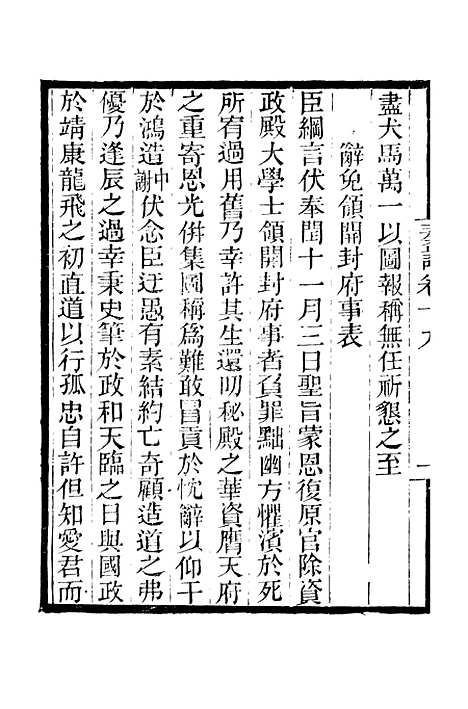 盡犬馬萬一以圖報稱無任祈懇之至
辭免領開封府事表
臣綱言伏奉閏十一月三日聖旨蒙恩復原官除資
政殿大學士領開封府事者負罪黜幽方懼濱於死
所宥過用舊乃幸許其生還叨秘殿之華資膺天府
之重寄恩光倂集圖稱爲難敢冒貢於忱辭以仰干
於鴻造中謝伏念臣迂愚有素結約亡奇顧造道之弗
優乃逢辰之過幸秉史筆於政和天臨之日與國政
於靖康龍飛之初直道以行孤忠自許但知愛君而